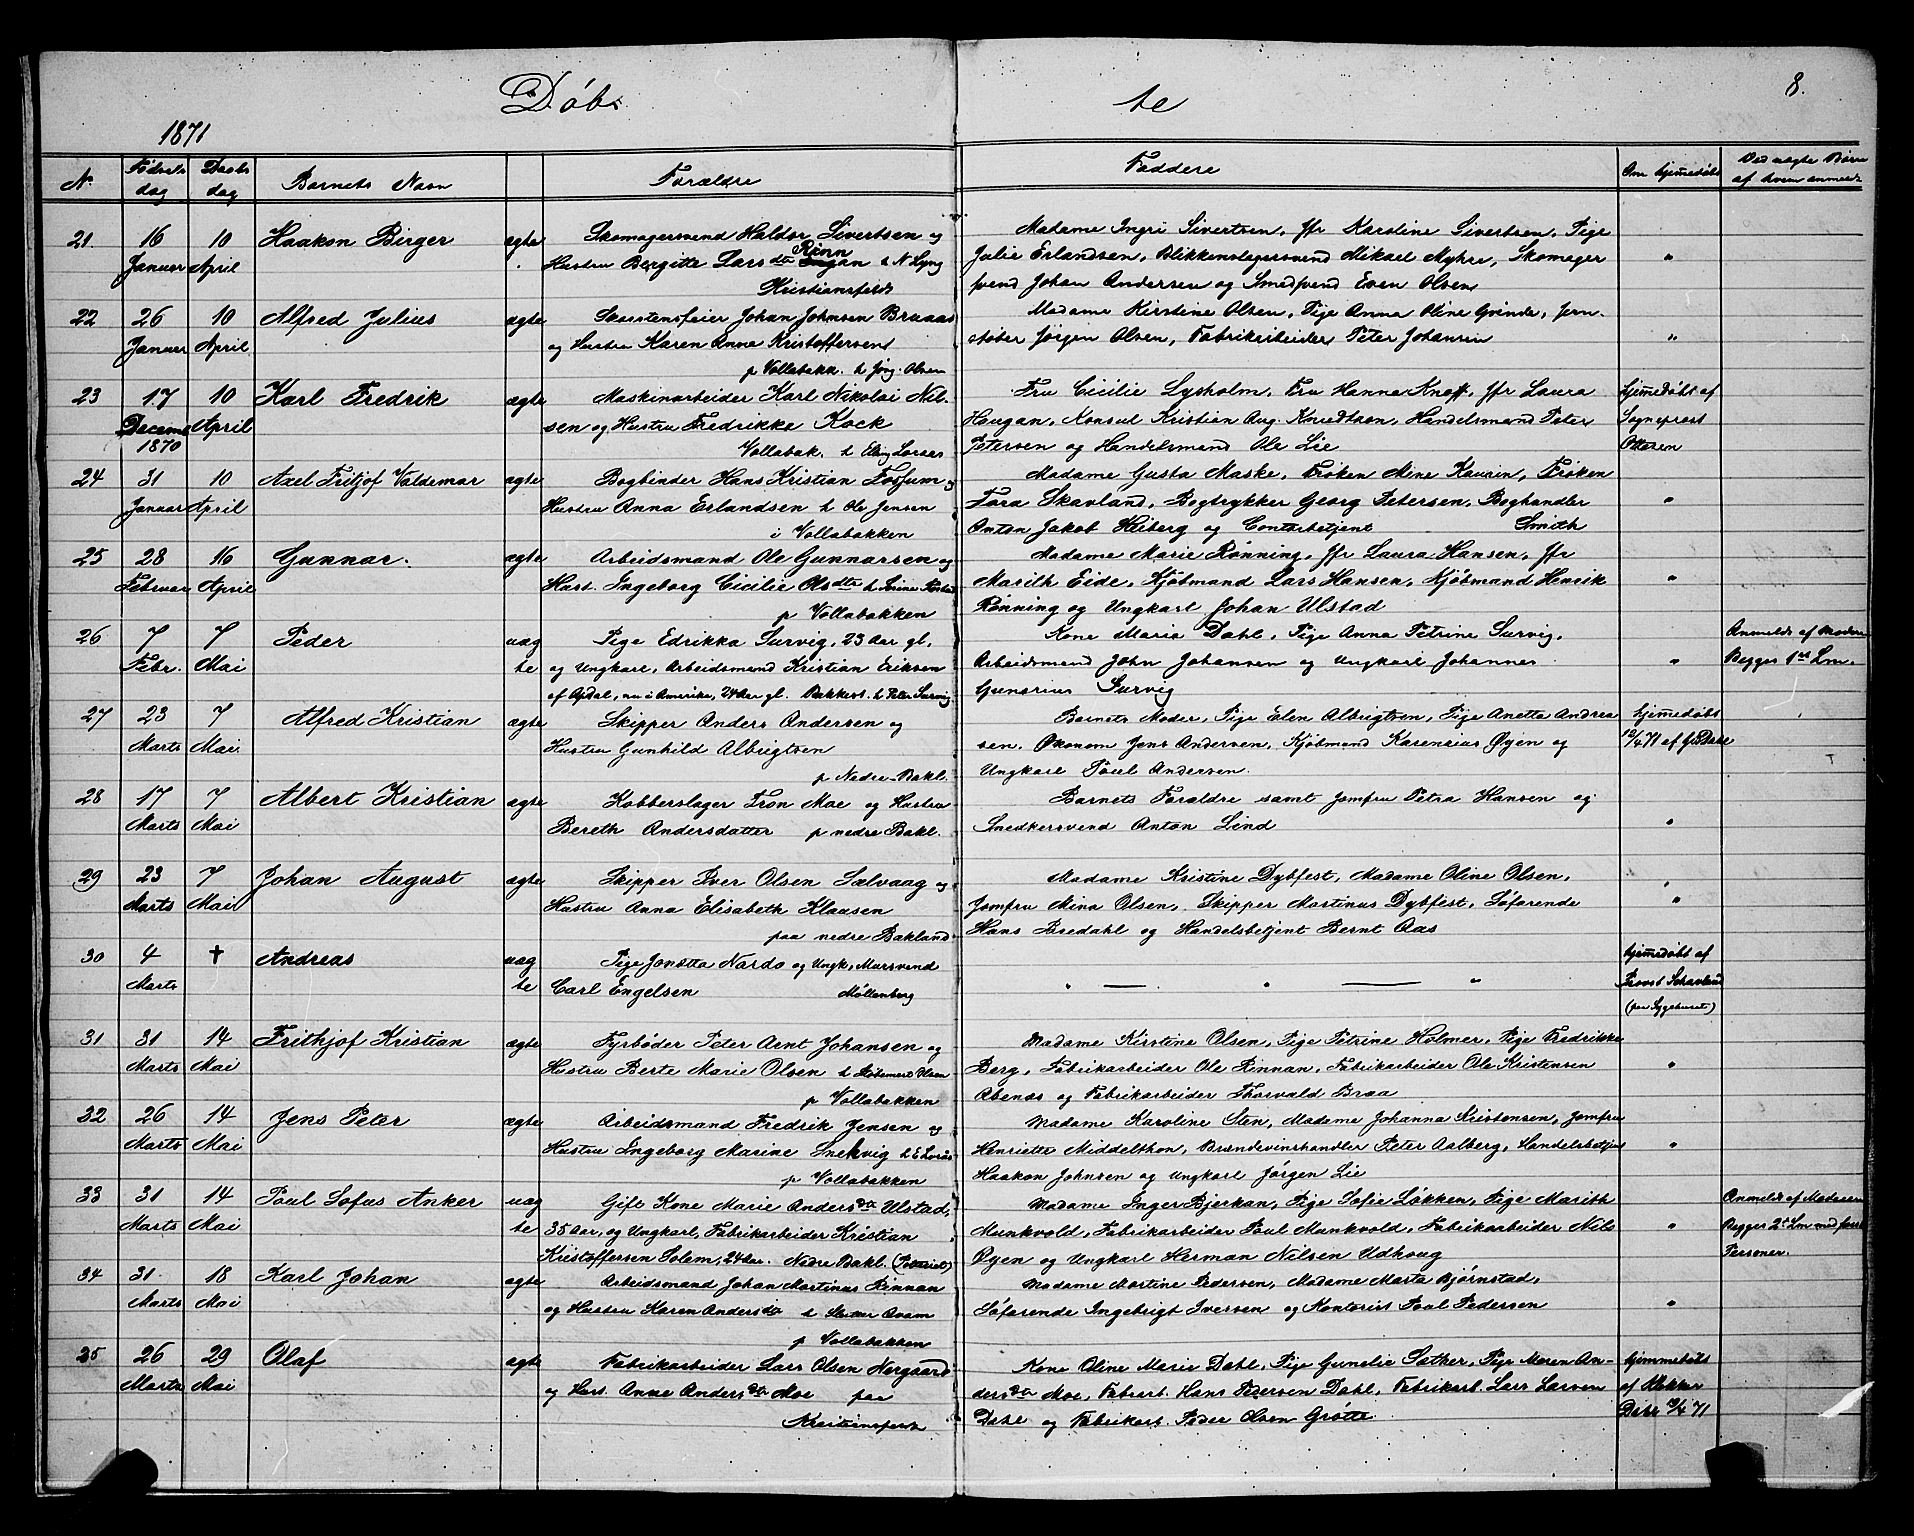 Døbte
8.
1871
No Fødsels dag Daabs dag Barnets Navn Forældre Faddere Om hjemmedøbt Ved uægte Børn af hvem anmeldt
21 16 Januar 10 April Haakon Birger ægte
Skomagersvend Haldor Sivertsen og
Hustru Bergitte Lars dtr Rønn t N Lyng
Kristiansfeldt
Madame Ingri Sivertsen, Jfr Karoline Sivertsen, Pige
Julie Erlandsen, Blikkenslagersvend Mikael Myhre, Skomager
svend Johan Andersen og Smedsvend Even Olsen
"
22 26 Januar 10 April Alfred Julius ægte
Skorstensfeier Johan Johnsen Bruaas
og Hustru Karen Anna Kristoffersen
p Vollabakk. t Jørg. Olsen
Madame Kirstine Olsen, Pige Anna Oline Grinde, Jern-
støber Jørgen Olsen, Fabrikarbeider Peter Johansen
"
23 17 Decemb 1870 10 April Karl Fredrik ægte
Maskinarbeider Karl Nikolai Nil-
sen og Hustru Fredrikke Kock
Vollabak. t Eling Lorses
Fru Cicilie Lysholm, Fru Hanna Kneff, Jfr Laura
Haugan, Konsul Kristian Aug. Knudtson, Handelsmand Peter
Petersen og Handelsmand Ole Lie
hjemmedøbt af
Sogneprest
Ottesen
24 31 Januar 10 April Axel Fritjof Valdemar ægte
Bogbinder Hans Kristian Fossum og
Hustru Anna Erlandsen t Ole Jensen
i Vollabakken
Madame Gusta Maske, Frøken Mine Kaurin, Frøken
Tora Skavland, Bogtrykker Georg Petersen, Boghandler
Anton Jakob Heiberg og Contorbetjent Smith
"
25 28 Februar 16 April Gunnar. ægte
Arbeidsmand Ole Gunnarsen og
Hust. Ingeborg Cicilie Ols dtr t
p Vollabakken
Madame Marie Rønning, Jfr Laura Hansen, Jfr
Marith Eide, Kjøbmand Lars Hansen, Kjøbmand Henrik
Rønning og Ungkarl Johan Ulstad
"
26 7 Febr. 7 Mai Peder uægte
Pige Edrikka Survig, 23 Aar gl.
og Ungkarl, Arbeidsmand Kristian Eriksen
af Opdal, nu i Amerika, 24 Aar gl. Bakkevs. t Peter Survig
Kone Maria Dahl, Pige Anna Petrine Survig,
Arbeidsmand John Johansen og Ungkarl Johannes
Gunerius Survig
"
Anmeldt af Moderen
Begges 1ste Lm.
27 23 Marts 7 Mai Alfred Kristian ægte
Skipper Anders Andersen og
Hustru Gunhild Albrigtsen
p Nedre Bakl.
Barnets Moder, Pige Elen Albrigtsen, Pige Anetta Andrea
sen, Økonom Jens Andersen, Kjøbmand Karenius Øyen og
Ungkarl Poul Andersen.
hjemmedøbt
12/4 71 af
28 17 Marts 7 Mai Albert Kristian ægte
Kobberslager Tron Moe og Hustru
Bereth Andersdatter p nedre Bakl.
Barnets Forældre samt Jomfru Petra Hansen og
Snedkersvend Anton Lind
"
29 23 Marts 7 Mai Johan August ægte
Skipper Iver Olsen Salvaag og
Hustru Anna Elisabeth Klausen
paa nedre Bakland
Madame Kristine Dybfest, Madame Oline Olsen,
Jomfru Mina Olsen, Skipper Martinus Dybfest, Søfarende
Hans Bredahl og Handelsbetjent Bernt Aas
"
30 4 Marts † Andreas uægte
Pige Jonetta Nardo og Ungk. Mursvend
Carl Engelsen Møllenberg
" — " — "
hjemmedøbt af
Provst Schavland
(paa Sygehuset)
31 31 Marts 14 Mai Frithjof Kristian ægte
Fyrbøder Peter Arnt Johansen og
Hustru Berte Marie Olsen t Olsen
p Vollabakken
Madame Kirstine Olsen, Pige Petrine Holmer, Pige Fredrikke
Berg, Fabrikarbeider Ole Rinnan, Fabrikarbeider Ole Kristensen
Abenæs og Fabrikarbeider Thorvald Braa
"
32 26 Marts 14 Mai Jens Peter ægte
Arbeidsmand Fredrik Jensen og
Hustru Ingeborg Marine Snekvig t E
p Vollabakken
Madame Karoline Sten, Madame Johanna Kristensen, Jomfru
Henriette Middelthon, Brændevinshandler Peter Aalberg, Handelsbetjent
Haakon Johnsen og Ungkarl Jørgen Lie
"
33 31 Marts 14 Mai Poul Sofus Anker uægte
Gift Kone Marie Anders dtr Ulstad,
35 Aar, og Ungkarl, Fabrikarbeider Kristian
Kristoffersen Solem, 24 Aar. Nedre Bakl.
Madame Inger Bjerkan, Pige Sofie Løkken, Pige Marith
Munkvold, Fabrikarbeider Poul Munkvold, Fabrikarbeider Nils
Øyen og Ungkarl Herman Nilsen Udhoug
"
Anmeldt af Moderen
Begges 2t Lm med forsk
Personer.
34 31. Marts 18 Mai Karl Johan ægte
Arbeidsmand Johan Martinus Rinnan
og Hustru Karen Anders dtr t Qvam
p Vollabakken
Madame Martine Pedersen, Madame Marta Bjørnstad,
Søfarende Ingebrigt Iversen og Kontorist Poul Pedersen
"
35 26 Marts 29 Mai Olaf ægte
Fabrikarbeider Lars Olsen Nergaard
og Hus. Anne Anders dtr Moe paa
Kristiansfeldt
Kone Oline Marie Dahl, Pige Gunelie Sather, Pige Maren An-
ders dtr Moe, Fabrarb. Hans Pedersen Dahl, Fabrikarb. Lars Larsen
Dahl og Fabrikarb. Peder Olsen Grøtte
hjemmedøbt
af Klokker
Dahl 9/4 71